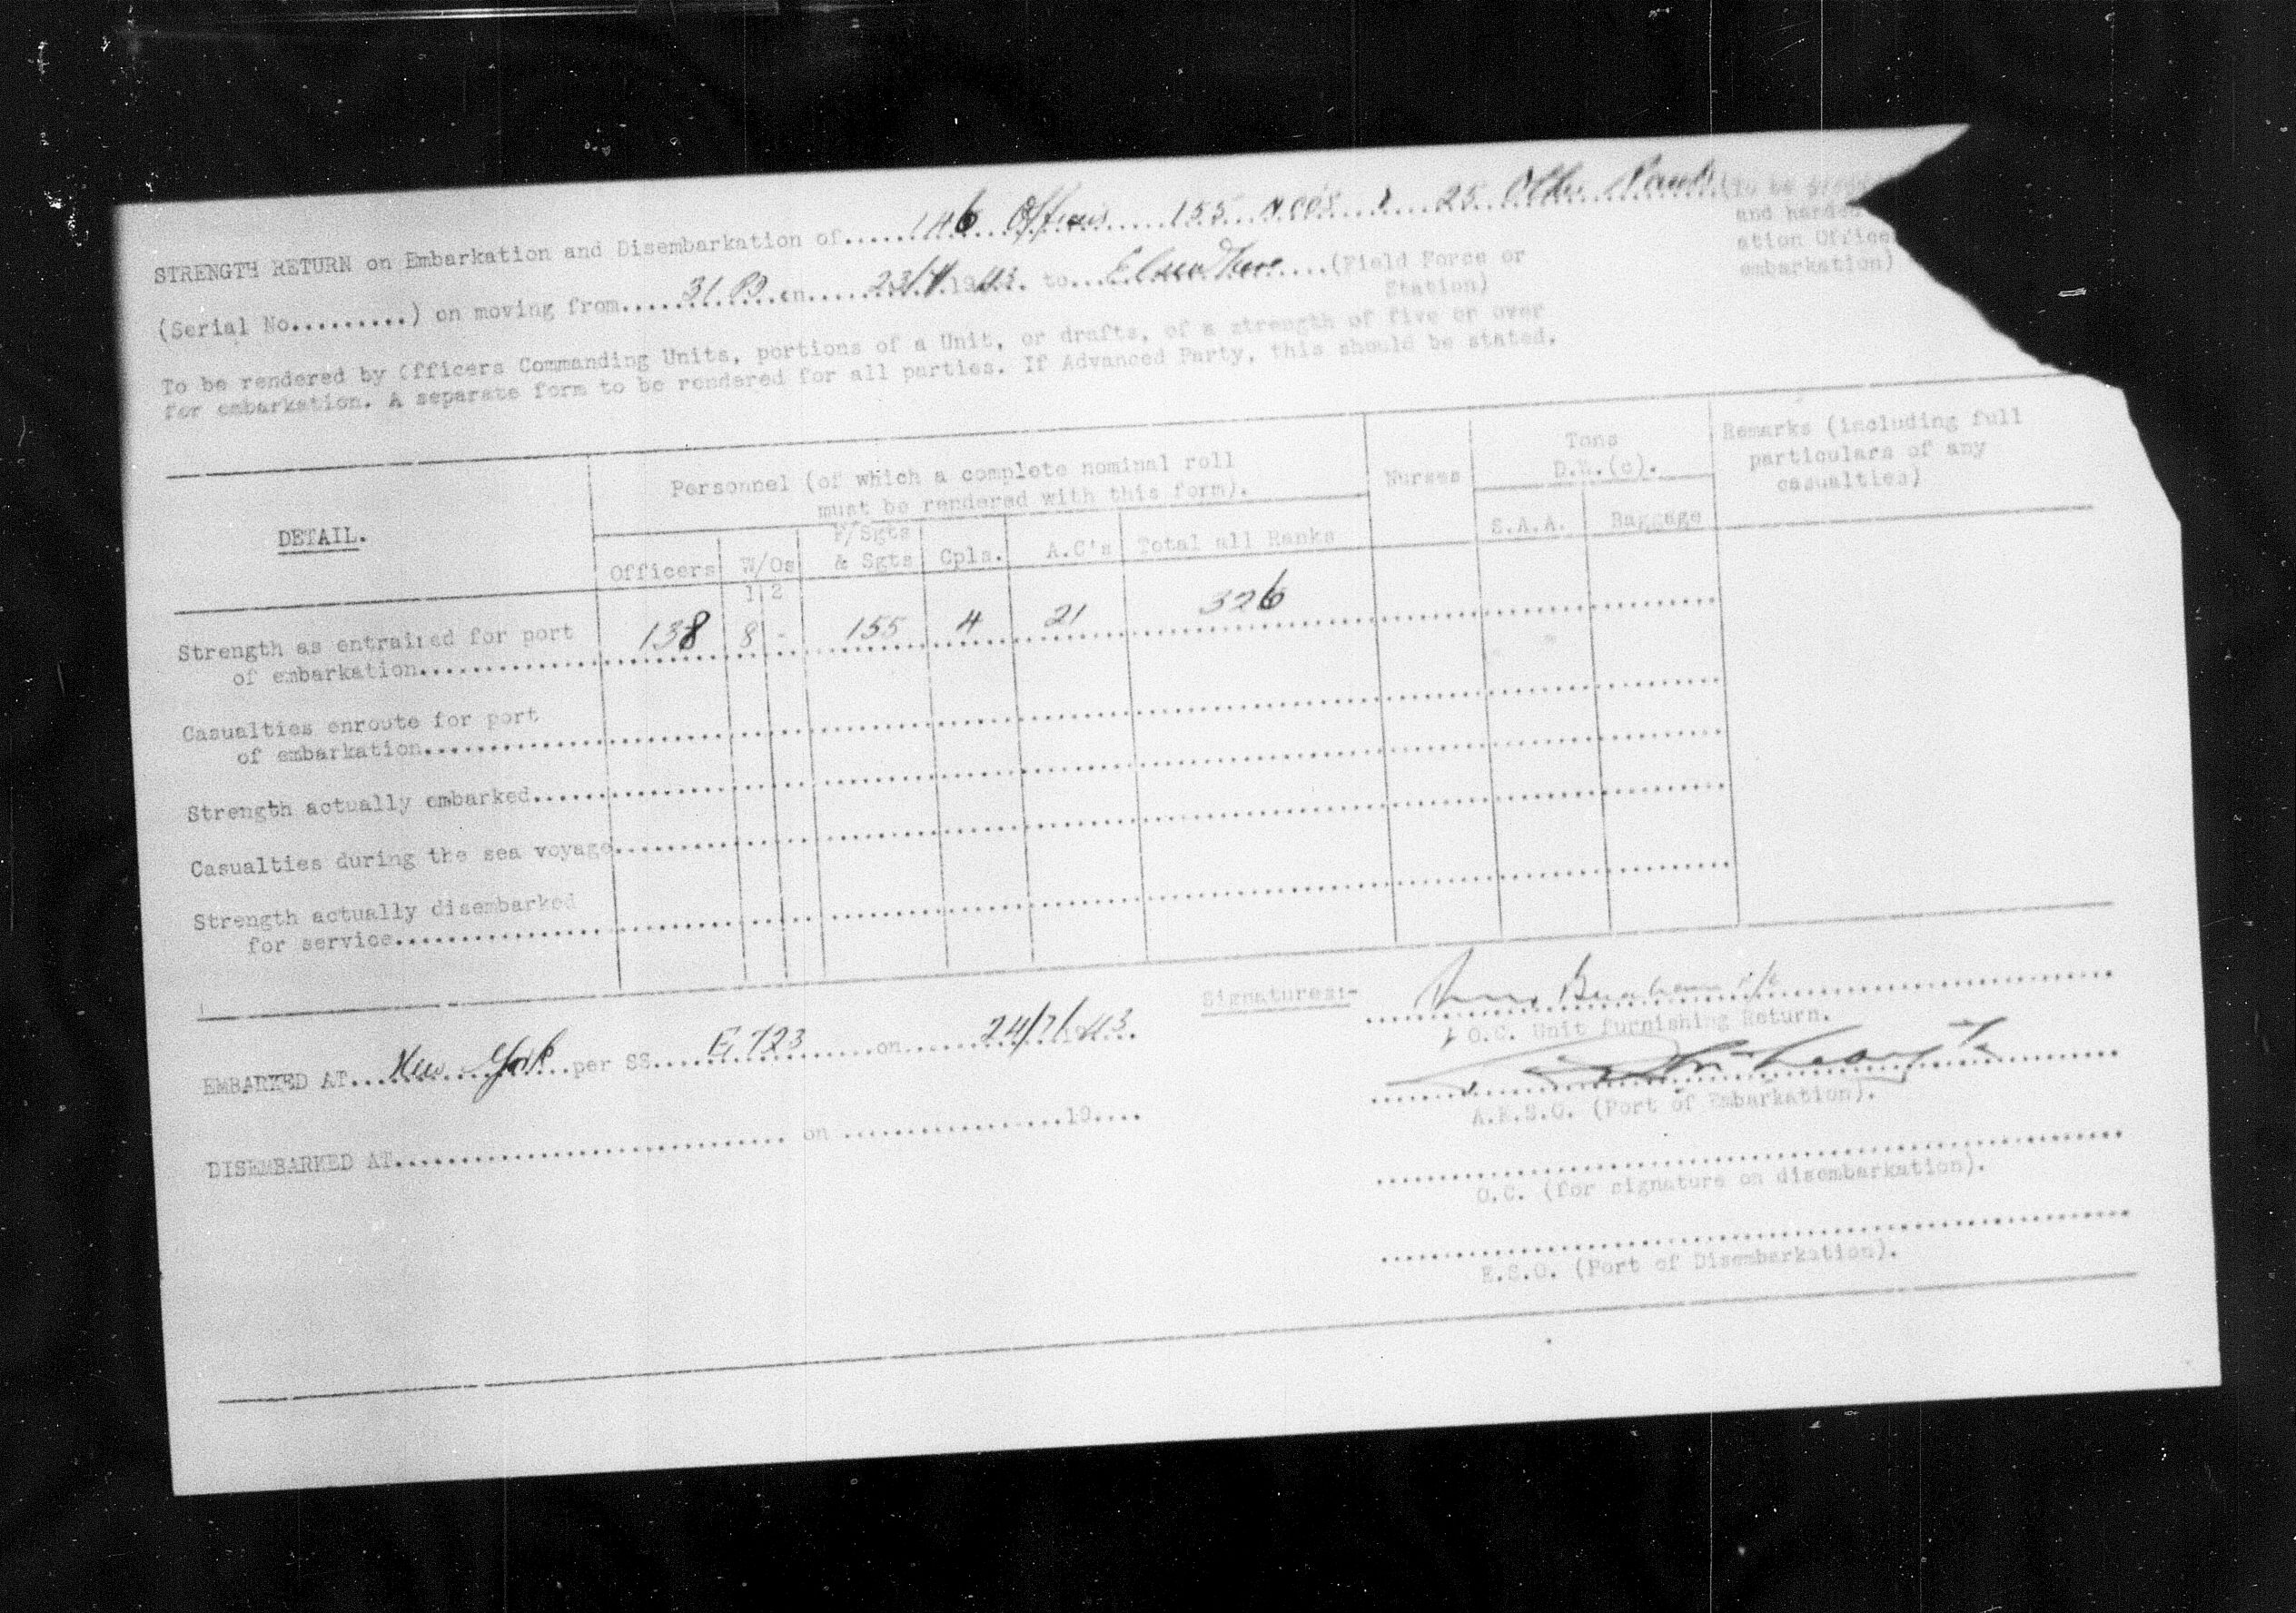 STRENGTH RETURN on Embarkation and Disembarkation of.....146 Officers.....155 NCO's.....25 Other Ranks (To be
and handed
ation Office
embarkation)
(Serial No.........) on moving from.....31 P.D. on.....23/7/1943. to.....Elsewhere.....(Field Force or
Station)
To be rendered by Officers Commanding Units, portions of a Unit, or drafts, of a strength of five or over
for embarkation. A separate form to be rendered for all parties. If Advanced Party, this should be stated.
DETAIL.
Personnel (of which a complete nominal roll
must be rendered with this form).
Nurses
Tons
D.W.(c).
Remarks (including full
particulars of any
casualties)
Officers W/Os F/Sgts & Sgts Cpls. A.C's Total all Ranks S.A.A. Baggage
1 2
Strength as entrained for port
of embarkation.......... 138 8 - 155 4 21 326
Casualties enroute for port
of embarkation..........
Strength actually embarked..........
Casualties during the sea voyage..........
Strength actually disembarked
for service..........
Signatures:-
O.C. Unit furnishing Return.
EMBARKED AT....New York....per SS....E 723....on....24/7/1943.
A.E.S.O. (Port of Embarkation).
DISEMBARKED AT.......... on ..........19....
O.C. (for signature on disembarkation).
E.S.O. (Port of Disembarkation).